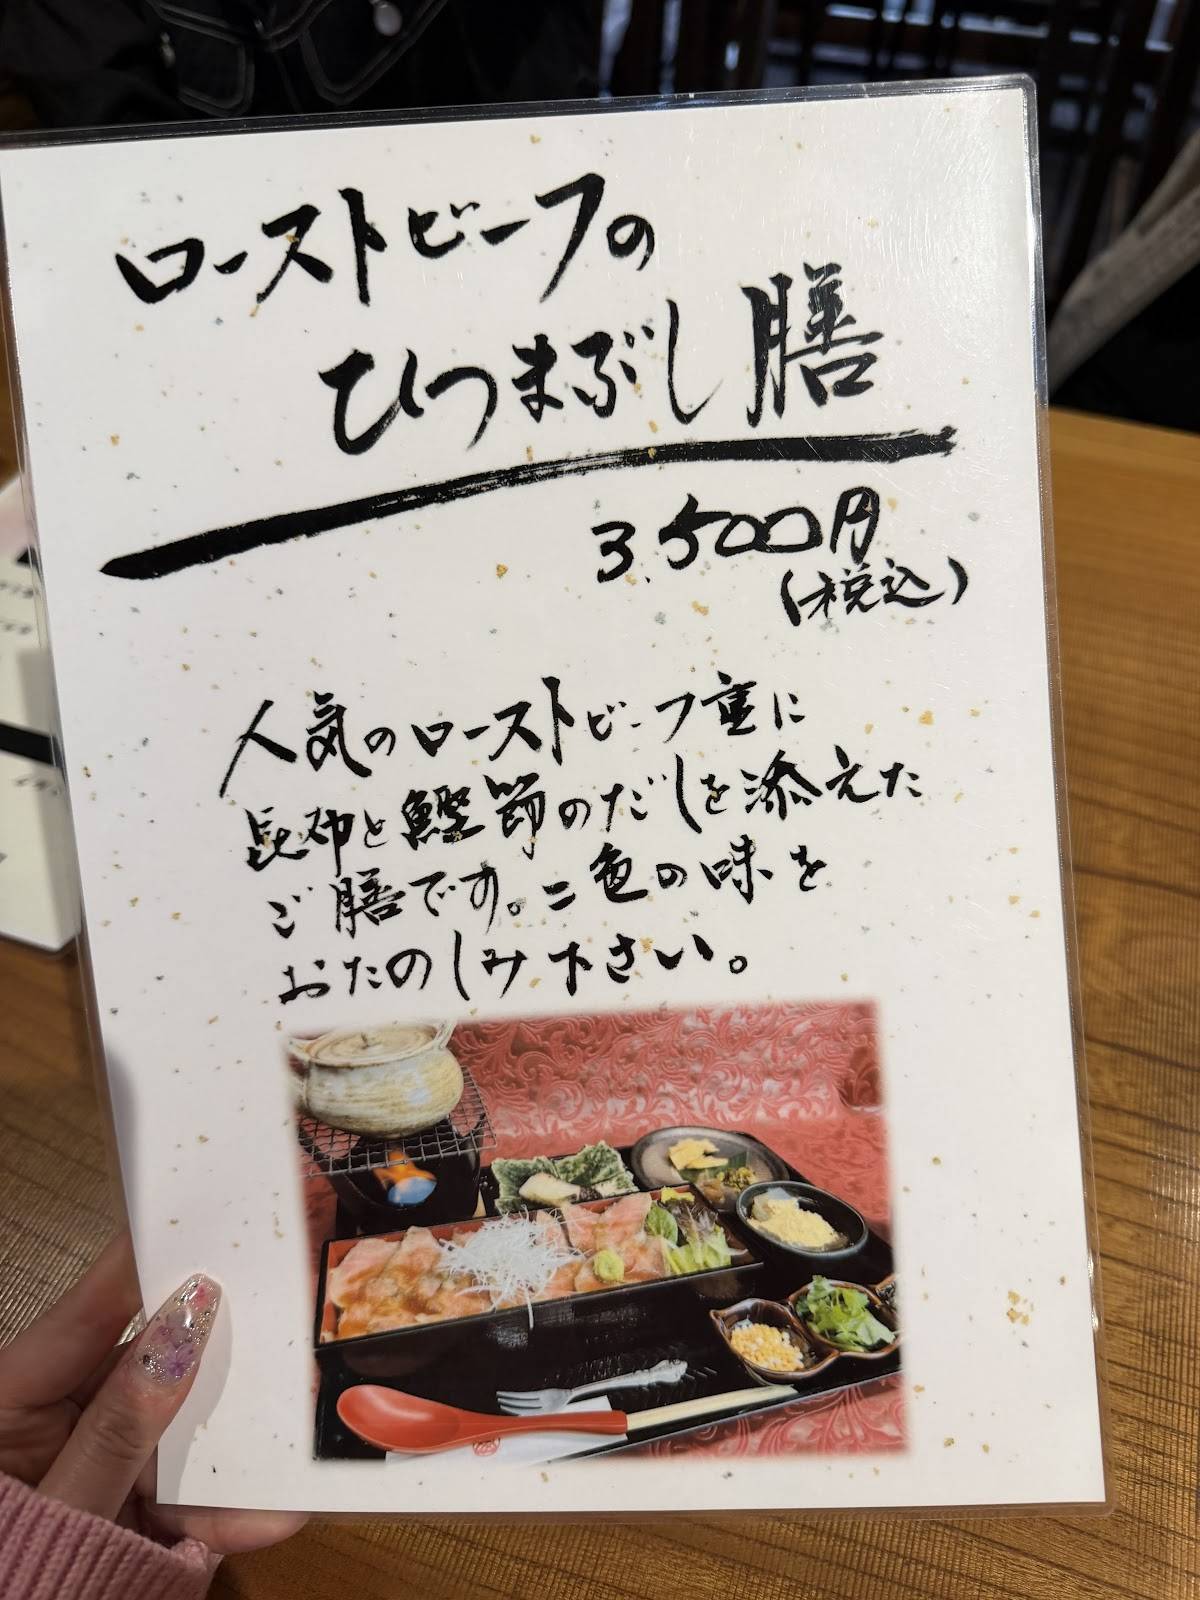 ローストビーフの
ひつまぶし膳
3,500円
(税込)
人気のローストビーフ重に
昆布と鰹節のだしを添えた
ご膳です。二色の味を
おたのしみ下さい。